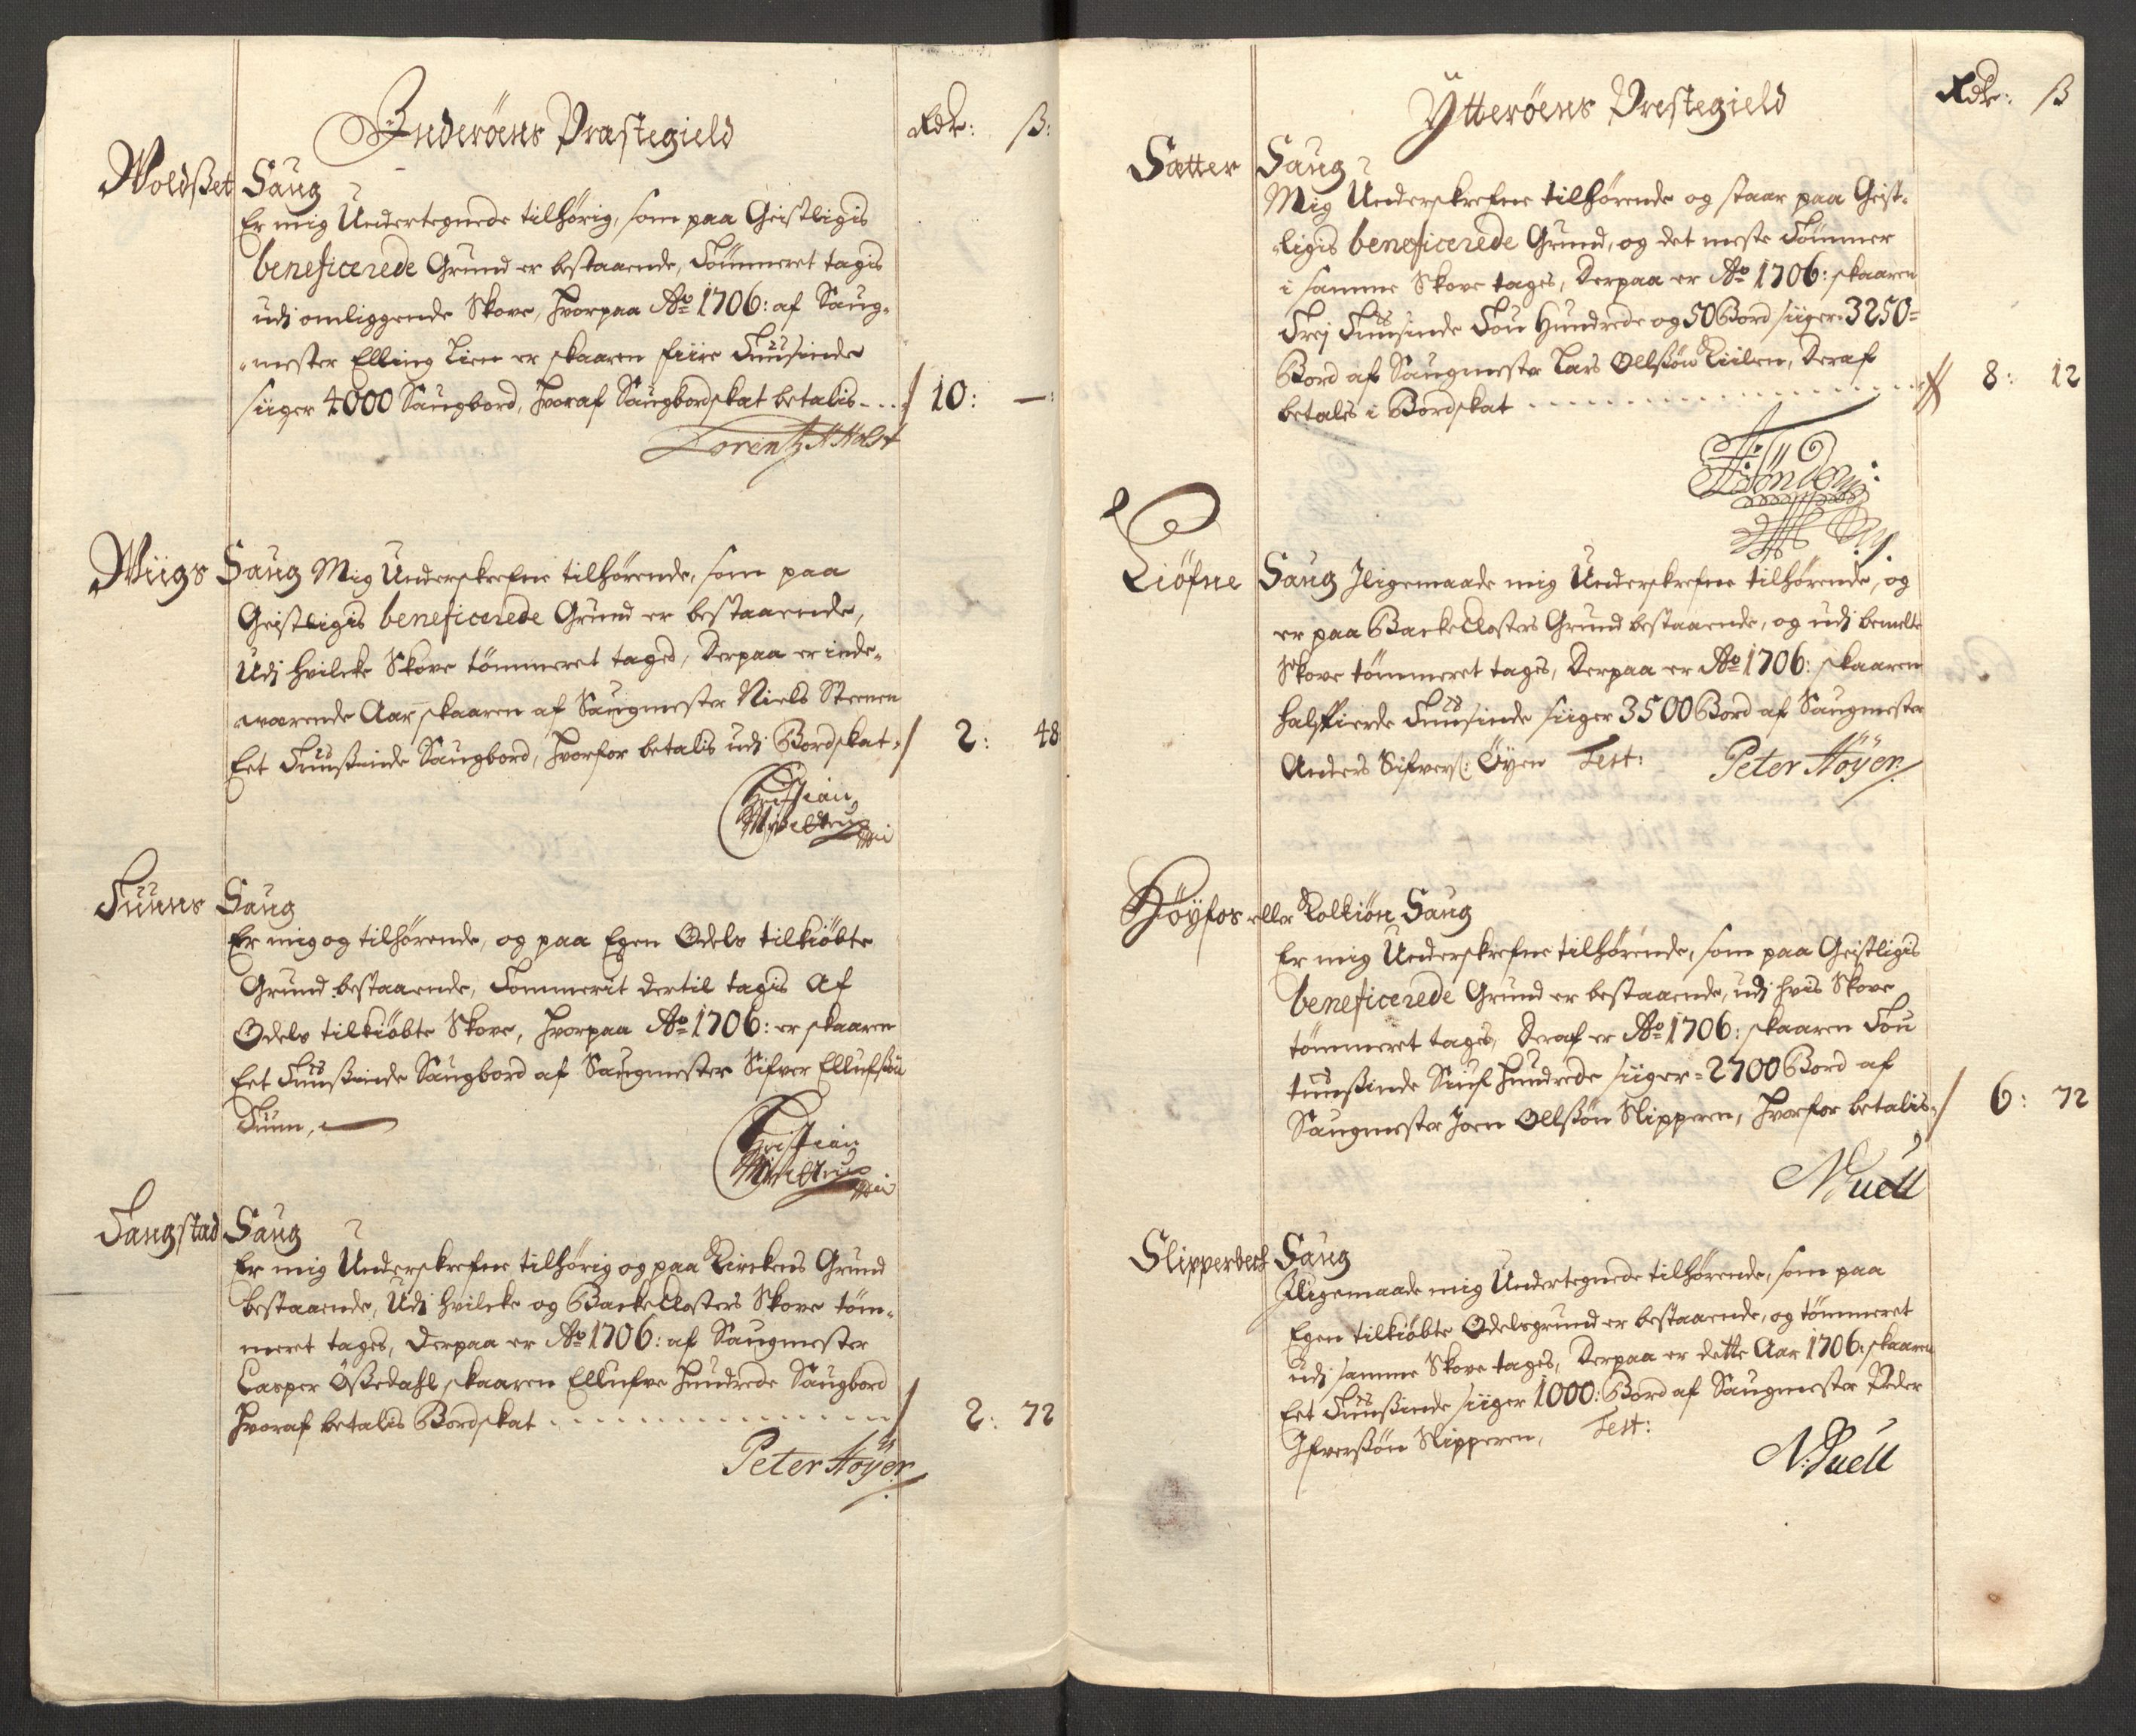 Inderöens Præstegield
Rdr: ß:
Woldßet Saug
Er mig Undertegnede tilhörig, som paa Geistligis
beneficerede Grund er bestaaende, Tömmeret tagis
udj omliggende Skove, hvorpaa Ao 1706: af Saug-
mester Elling Lien er skaaren fiire Tuusinde
siiger 4000 Saugbord, hvoraf Saugbordskat betalis 10: —:
Lorentz Holst
Wiigs Saug Mig Underskrefne tilhørende, som paa
Geistligis beneficerede Grund er bestaaende,
Udj hvilcke Skove tömmeret taged, derpaa er inde-
værende Aar skaaren af Saugmester Niels Steenen
Eet Tuußinde Saugbord, hvorfor betalis udj Bordskat 2: 48
Christian
Saug
Er mig og tilhørende, og paa Egen Odels tilkiöbte
Grund bestaaende, Tömmerit dertil tagis af
Odels tilkiöbte Skove, hvorpaa Ao 1706: er skaaren
Eet Tuußinde Saugbord af Saugmester Sifver Ellufßön
Christian
Langstad Saug
Er mig Underskrefne tilhörig og paa Kirckens Grund
bestaaende, Udj hvilcke og Backe Closters Skove töm-
meret tages, derpaa er Ao 1706: af Saugmester
Casper Ößedahl skaaren Ellufve hundrede Saugbord
hvoraf betalis Bordskat 2: 72
Peter Höyer
Ytteröens Prestegield
Rdr: ß
Sætter Saug
Mig Underskrefne tilhørende og staar paa Geist-
ligis beneficerede Grund, og det meste Tömmer
i samme Skove tages, derpaa er Ao 1706: skaaren
Trej Tuusinde Tou Hundrede og 50 Bord siiger 3250
Bord af Saugmester Lars Ollßön Kiilen, deraf
betales i Bordskat 8: 12
Liöfne Saug Iligemaade mig Underskrefne tilhørende, og
er paa Backe Closters Grund bestaaende, og udj bemelte
Skove tömmeret tages, derpaa er Ao 1706: skaaren
halffierde Tuusinde siiger 3500 Bord af Saugmester
Anders Sifvers: Öyen Test: Peter Höyer
Höyfos eller Kolkiön Saug
Er mig Underskrefne tilhørende, som paa Geistligis
beneficerede Grund er bestaaende, udj hvis Skove
tömmeret tages, deraf er Ao 1706: skaaren Tou
tuußinde Siuf hundrede siiger 2700 Bord af
Saugmester Joen Ollßön Slipperen, hvorfor betalis 6: 72
N Buell
Slipperbech Saug
Iligemaade mig Undertegnede tilhørende, som paa
Egen tilkiöbte Odelsgrund er bestaaende, og tömmeret
udj samme Skove tages, derpaa er dette Aar 1706: skaaren
Eet Tuußinde siiger 1000: Bord af Saugmester Peder
Ifverßön Slipperen, Test:
N: Buell